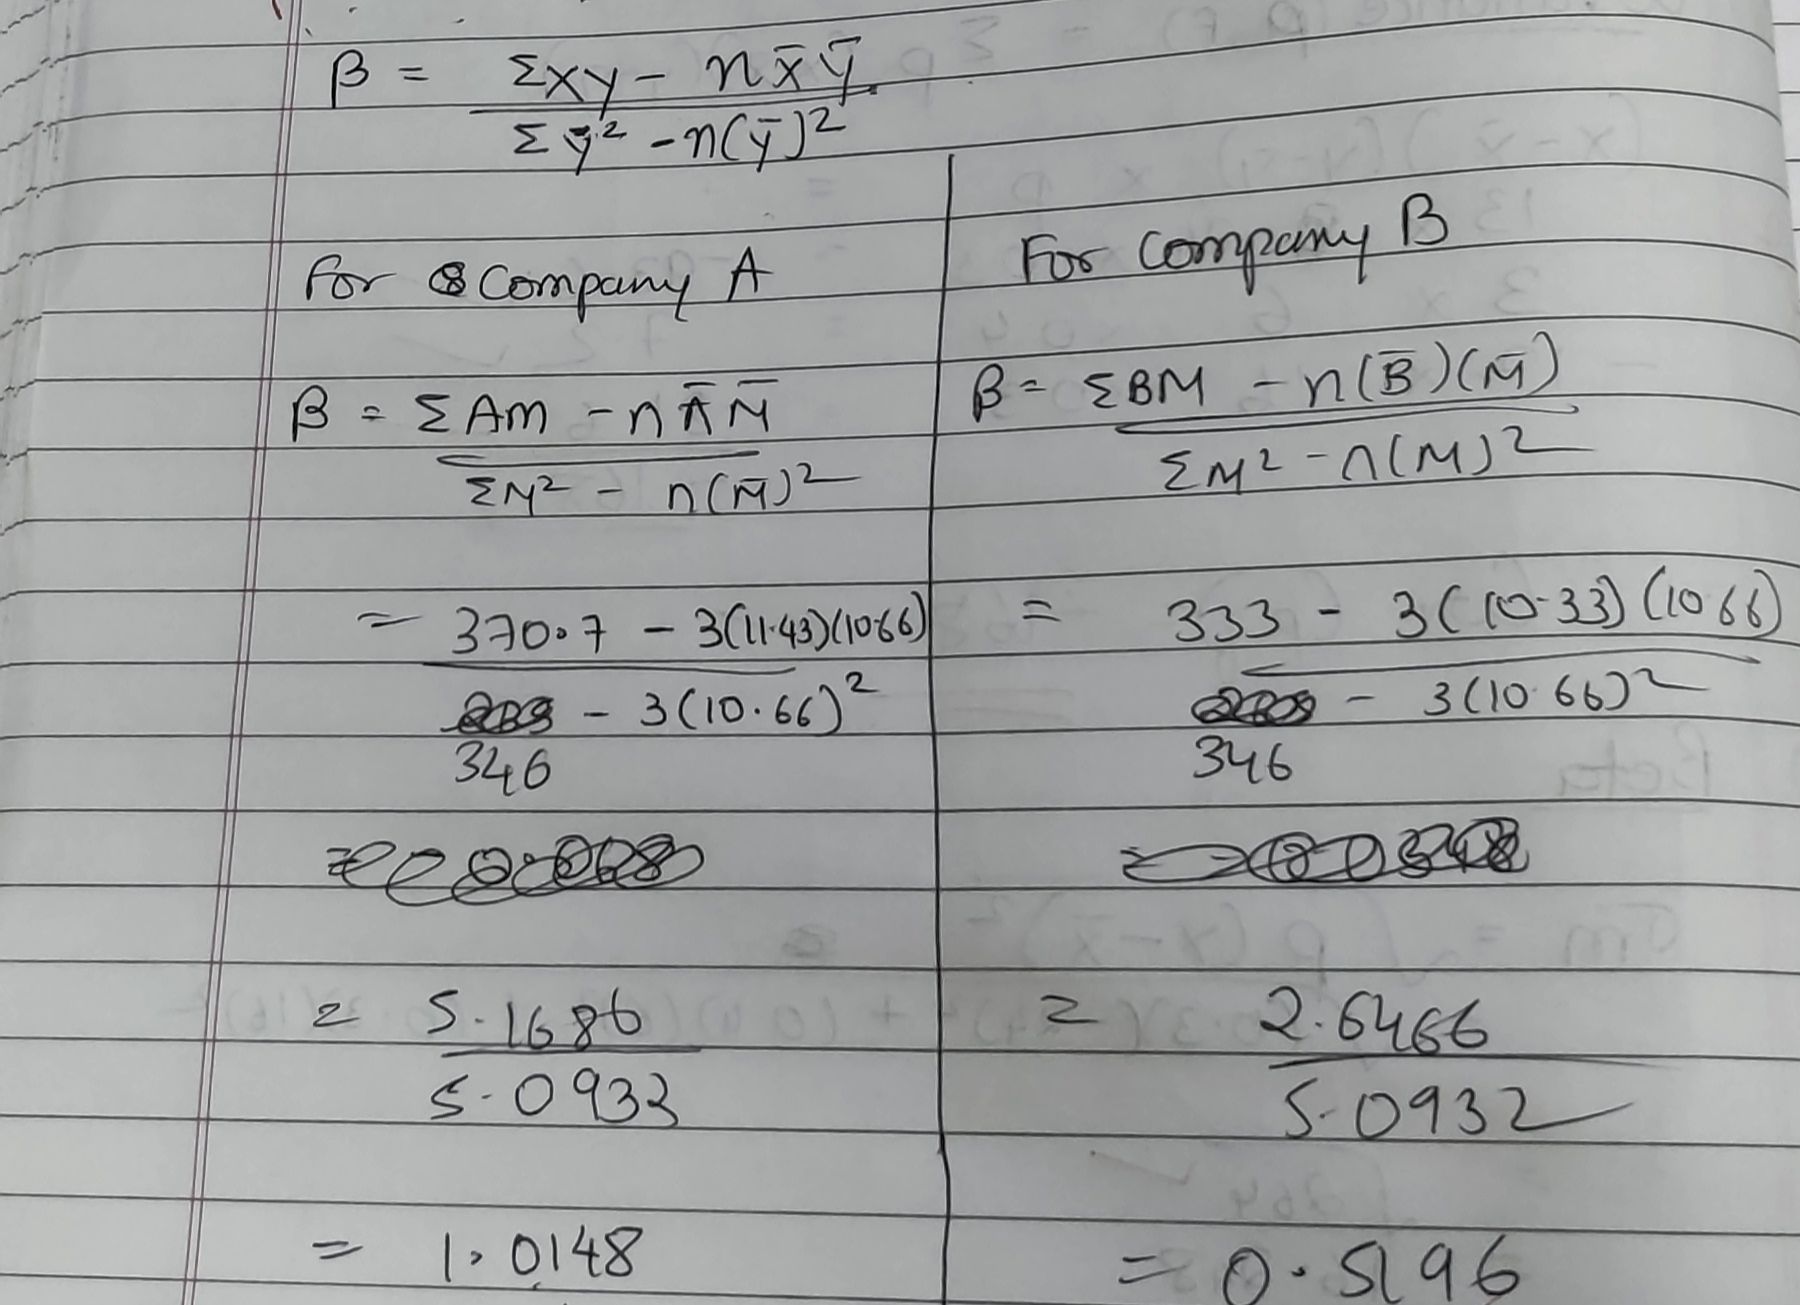 β = ΣXY - n X̄ Ȳ
Σ ȳ² - n(ȳ)²
For Company A
β = ΣAM - n Ā M̄
ΣM² - n(M̄)²
= 370.7 - 3(11.43)(10.66)
- 3(10.66)²
346
= 5.1686
5.0932
= 1.0148
For Company B
β = ΣBM - n(B̄)(M̄)
ΣM² - n(M)²
= 333 - 3(10.33)(10.66)
- 3(10.66)²
346
= 2.6466
5.0932
= 0.5196